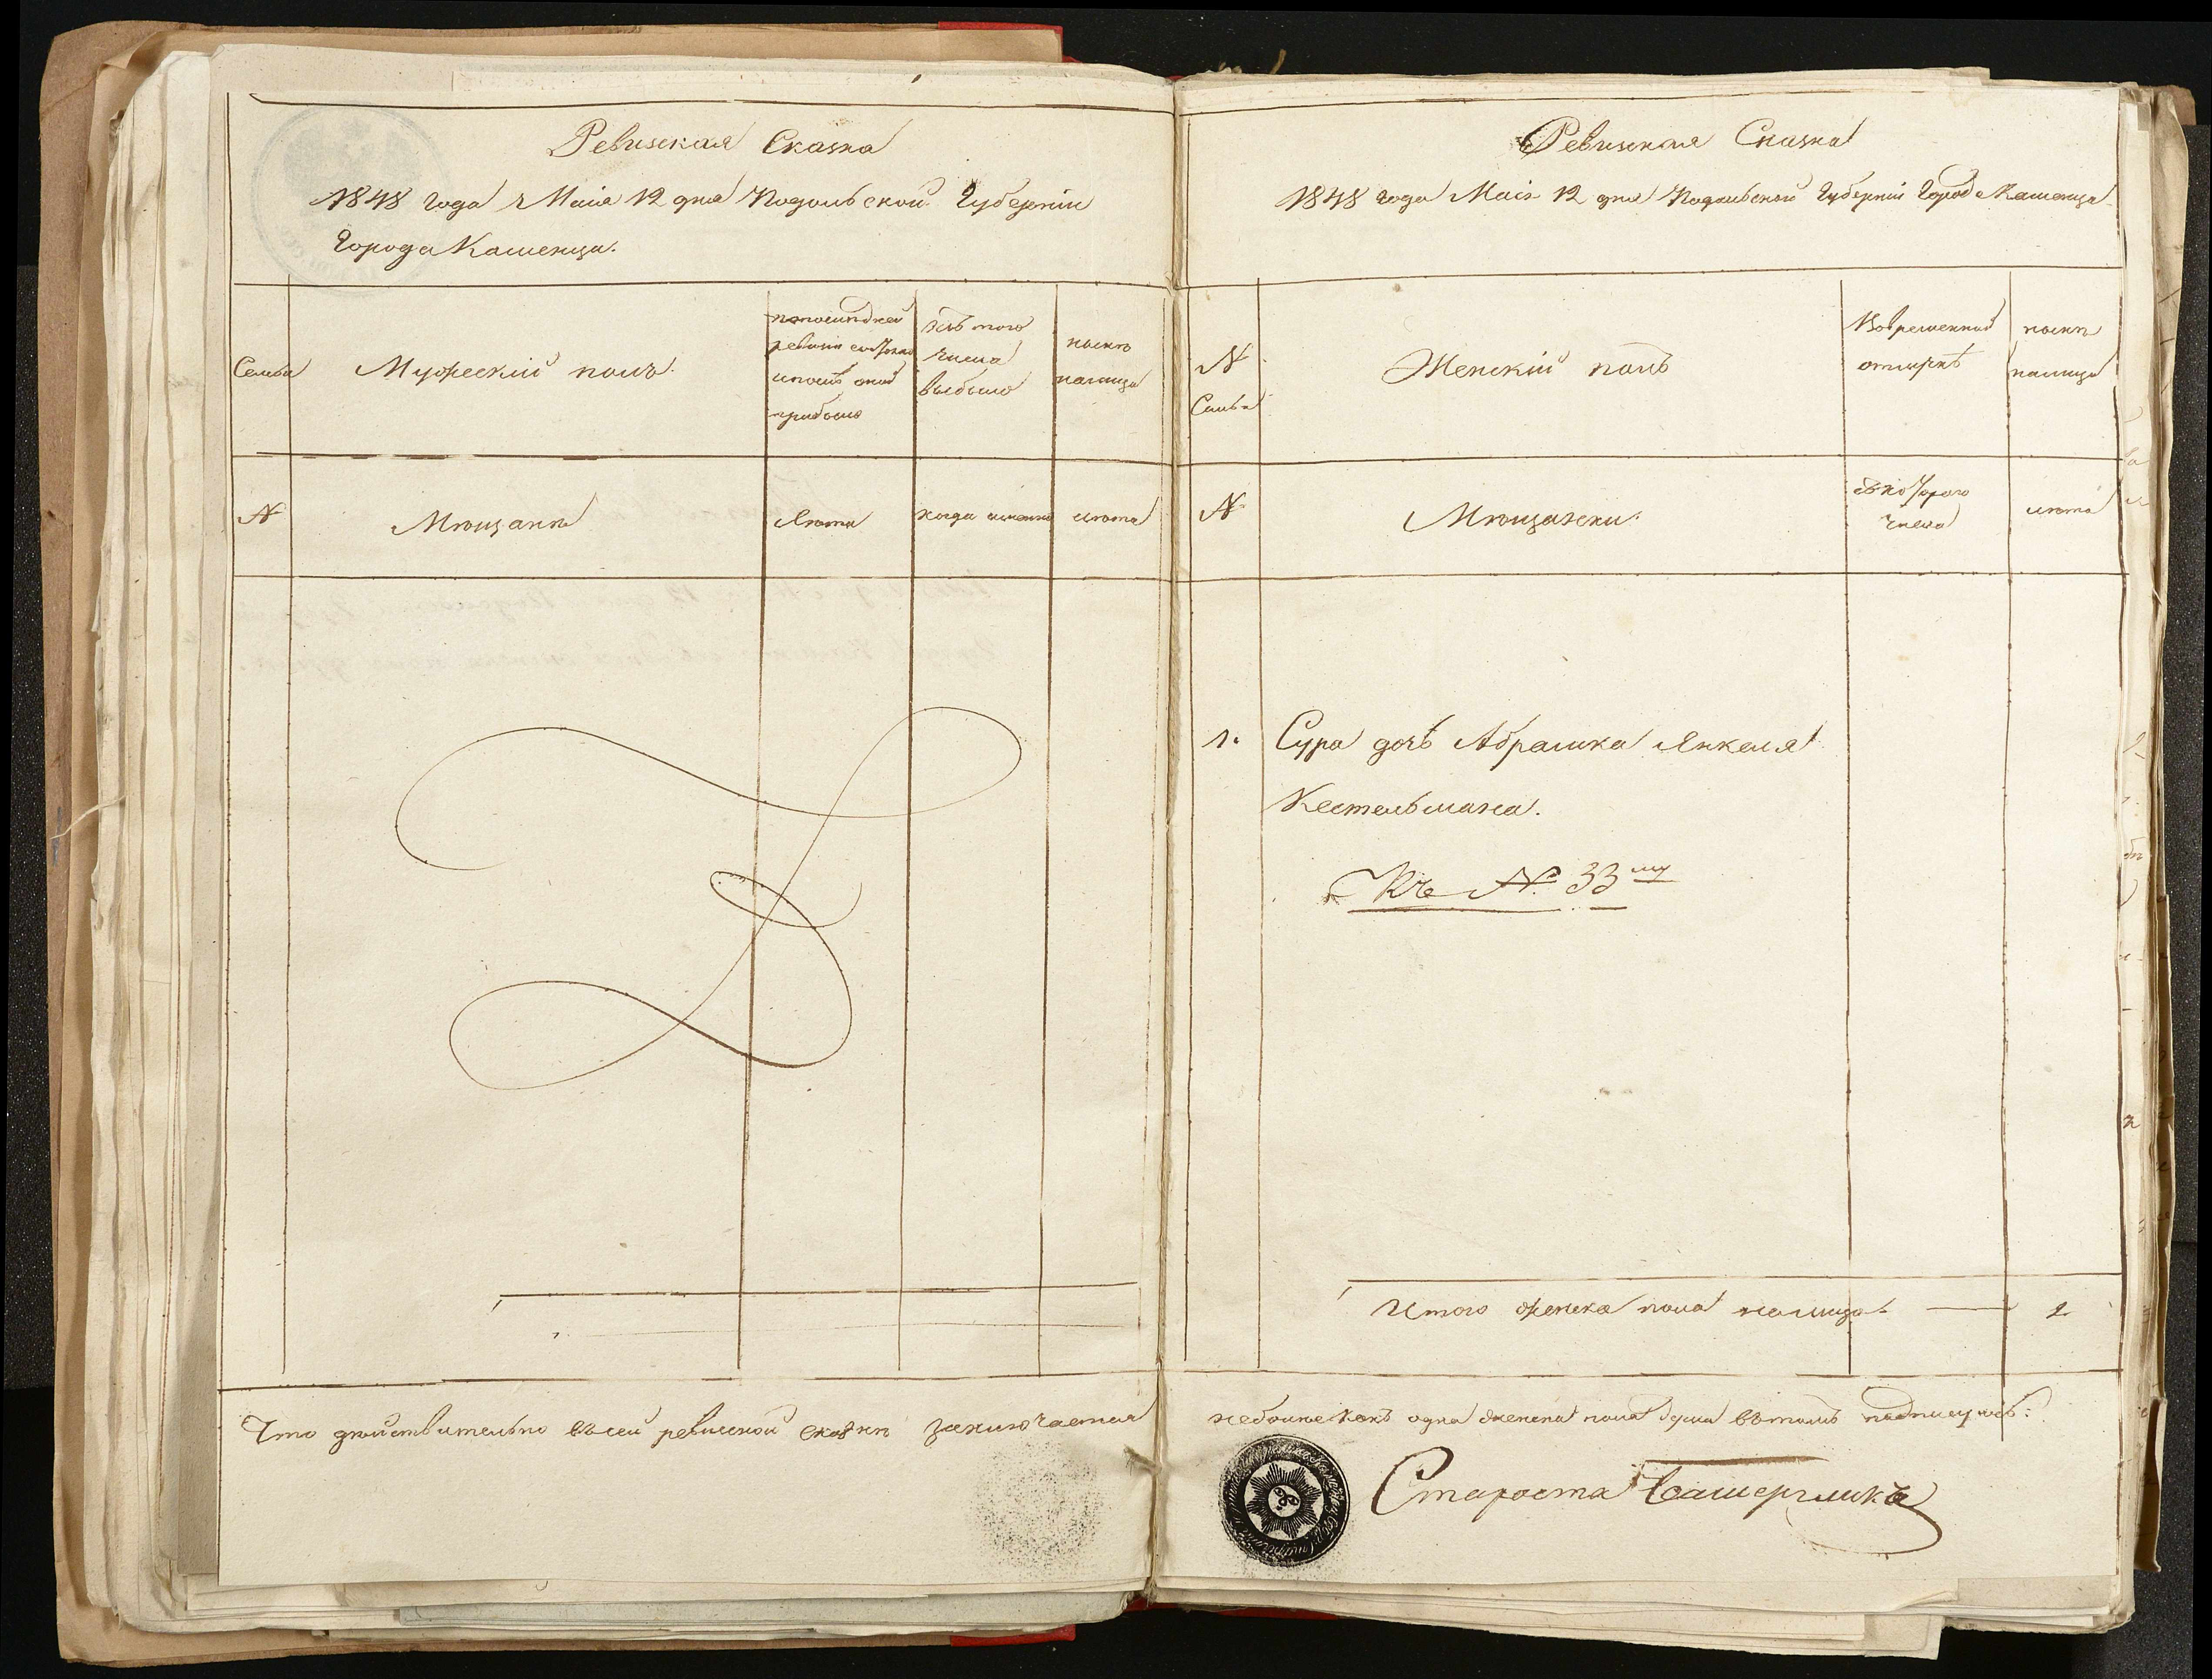 Ревизская Сказка
1848 года Маія 12 дня Подольской Губерніи
Города Каменца.
Семьи
Мужескій полъ.
по последней
ревизіи состояло
и после оной
прибыло
Изъ того
числа
выбыло
ныне
налицо
№
Мещане
Лета
когда именно
лета
Ревизская Сказка
1848 года Маія 12 дня Подольской Губерніи Города Каменца
№
Семьи
Женскій полъ
Вовременной
отлучке
ныне
налицо
№
Мещанки.
съ котораго
числа
лета
1. Сура дочь Абрамка Янкеля
Кестельмана.
Къ № 33му
Итого женска пола налицо — 1
Что действительно въ сей ревизской сказке заключается
не более какъ одна женска пола душа въ томъ подписуюсь:
Староста